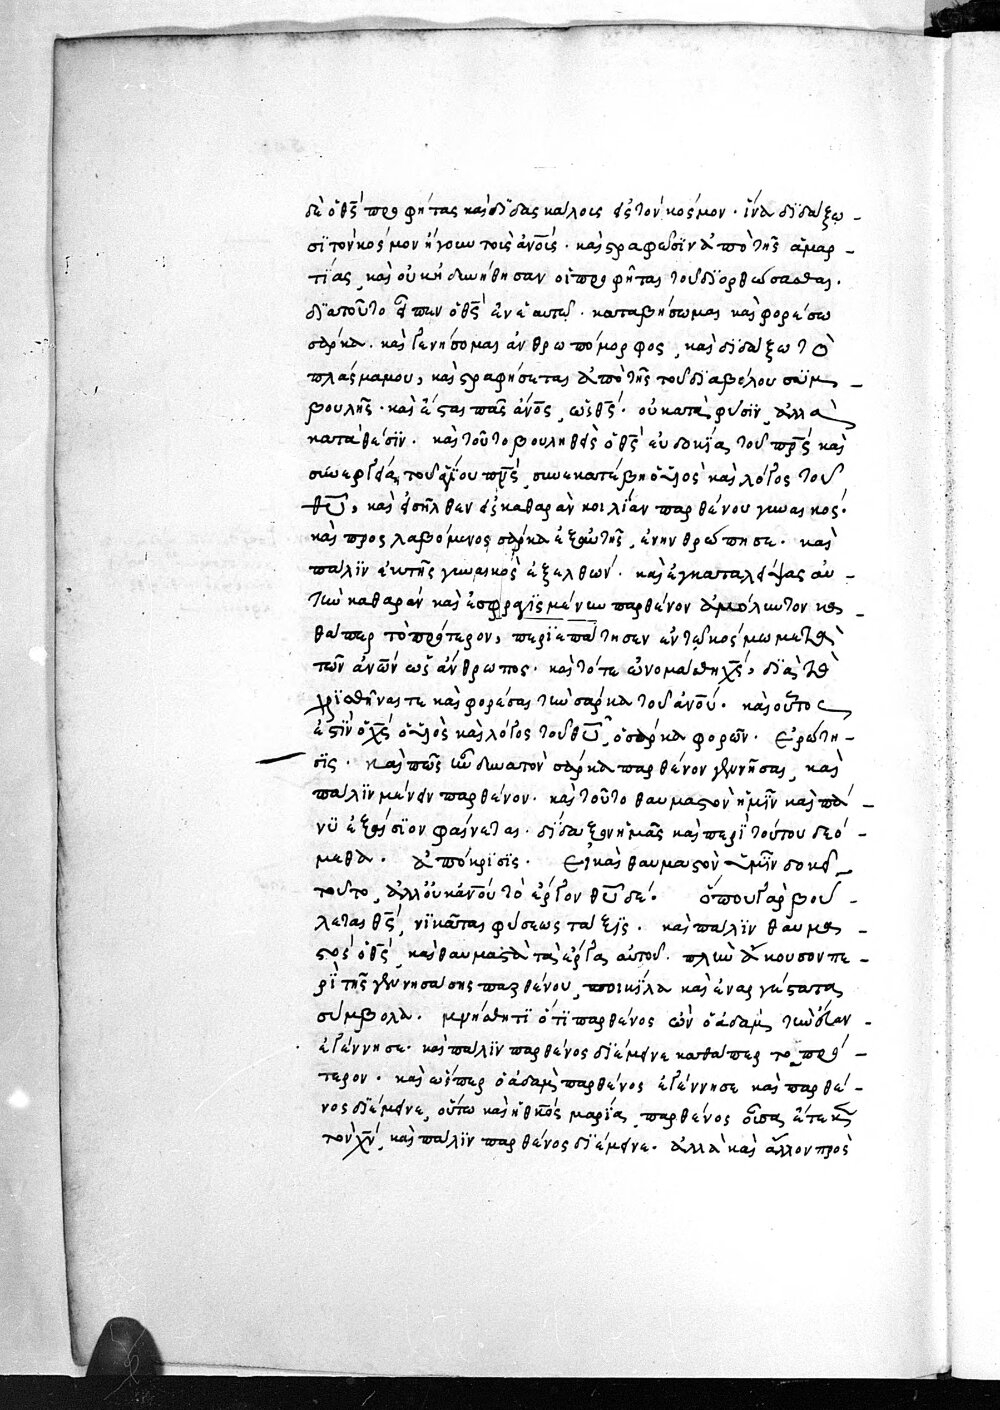 δὲ ὁ θς προφήτας καὶ διδασκάλους εἰς τὸν κόσμον. ἵνα διδάξω-
σι τὸν κόσμον ἤγουν τοὺς ἀνους. καὶ στραφῶσιν ἀπὸ τῆς ἁμαρ-
τίας, καὶ οὐκ ἠδυνήθησαν οἱ προφῆται τοῦ διορθώσασθαι.
διὰ τοῦτο εἶπεν ὁ θς ἐν ἑαυτῷ. καταβήσωμαι καὶ φορέσω
σάρκα. καὶ γενήσομαι ἀνθρωπόμορφος, καὶ διδάξω τὸ
πλάσμα μου, καὶ στραφήσεται ἀπὸ τῆς τοῦ διαβόλου συμ-
βουλῆς. καὶ ἔσται πᾶς ἀνος, ὡς θς. οὐ κατὰ φύσιν, ἀλλὰ
κατὰ θέσιν. καὶ τοῦτο βουληθεὶς ὁ θς εὐδοκία τοῦ πρς καὶ
συνεργεία τοῦ ἁγίου πνς, συνεκατέβη ὁ υἱὸς καὶ λόγος τοῦ
θυ, καὶ εἰσῆλθεν εἰς καθαρὰν κοιλίαν παρθένου γυναικός.
καὶ προσλαβόμενος σάρκα ἐξ αὐτῆς, ἐνηνθρώπησε. καὶ
πάλιν ἐκ τῆς γυναικὸς ἐξελθών. καὶ ἐγκαταλείψας αὐ-
τὴν καθαρὰν καὶ ἐσφραγισμένην παρθένον ἀμόλυντον κα-
θάπερ τὸ πρότερον, περιεπάτησεν ἐν τῷ κόσμω μετὰ
τῶν ἀνων ὡς ἄνθρωπος. καὶ τότε ὠνομάσθη χς, διὰ τὸ
χρισθῆναί τε καὶ φορέσαι τὴν σάρκα τοῦ ἀνου. καὶ οὗτος
ἐστὶν ὁ χς ὁ υἱὸς καὶ λόγος τοῦ θυ, ὁ σάρκα φορῶν. Ἐρώτη-
σις. Καὶ πῶς ἦν δυνατὸν σάρκα παρθένον γεννῆσαι, καὶ
πάλιν μένειν παρθένον. καὶ τοῦτο θαυμαστὸν ἡμῖν καὶ πά-
νυ ἐξαίσιον φαίνεται. δίδαξον ἡμᾶς καὶ περὶ τούτου δεό-
μεθα. ἀπόκρισις. Εἰ καὶ θαυμαστὸν ὑμῖν δοκεῖ
τοῦτο, ἀλλ' οὐκ ἀνου τὸ ἔργον θυ δέ. ὅπου γὰρ βού-
λεται θς, νικᾶται φύσεως τάξις. καὶ πάλιν θαυμα-
στὸς ὁ θς, καὶ θαυμαστὰ τὰ ἔργα αὐτοῦ. πλὴν ἄκουσον πε-
ρὶ τῆς γεννησάσης παρθένου, ποικίλα καὶ ἐναργέστατα
σύμβολα. μνήσθητι ὅτι παρθένος ὢν ὁ ἀδὰμ τὴν εὔαν
ἐγέννησε. καὶ πάλιν παρθένος διέμεινε καθάπερ τὸ πρό-
τερον. καὶ ὥσπερ ὁ ἀδὰμ παρθένος ἐγέννησε καὶ παρθέ-
νος διέμεινε, οὕτω καὶ ἡ θκος μαρία, παρθένος οὖσα ἔτεκε
τὸν χν, καὶ πάλιν παρθένος διέμεινε. ἀλλὰ καὶ ἄλλον πρὸς